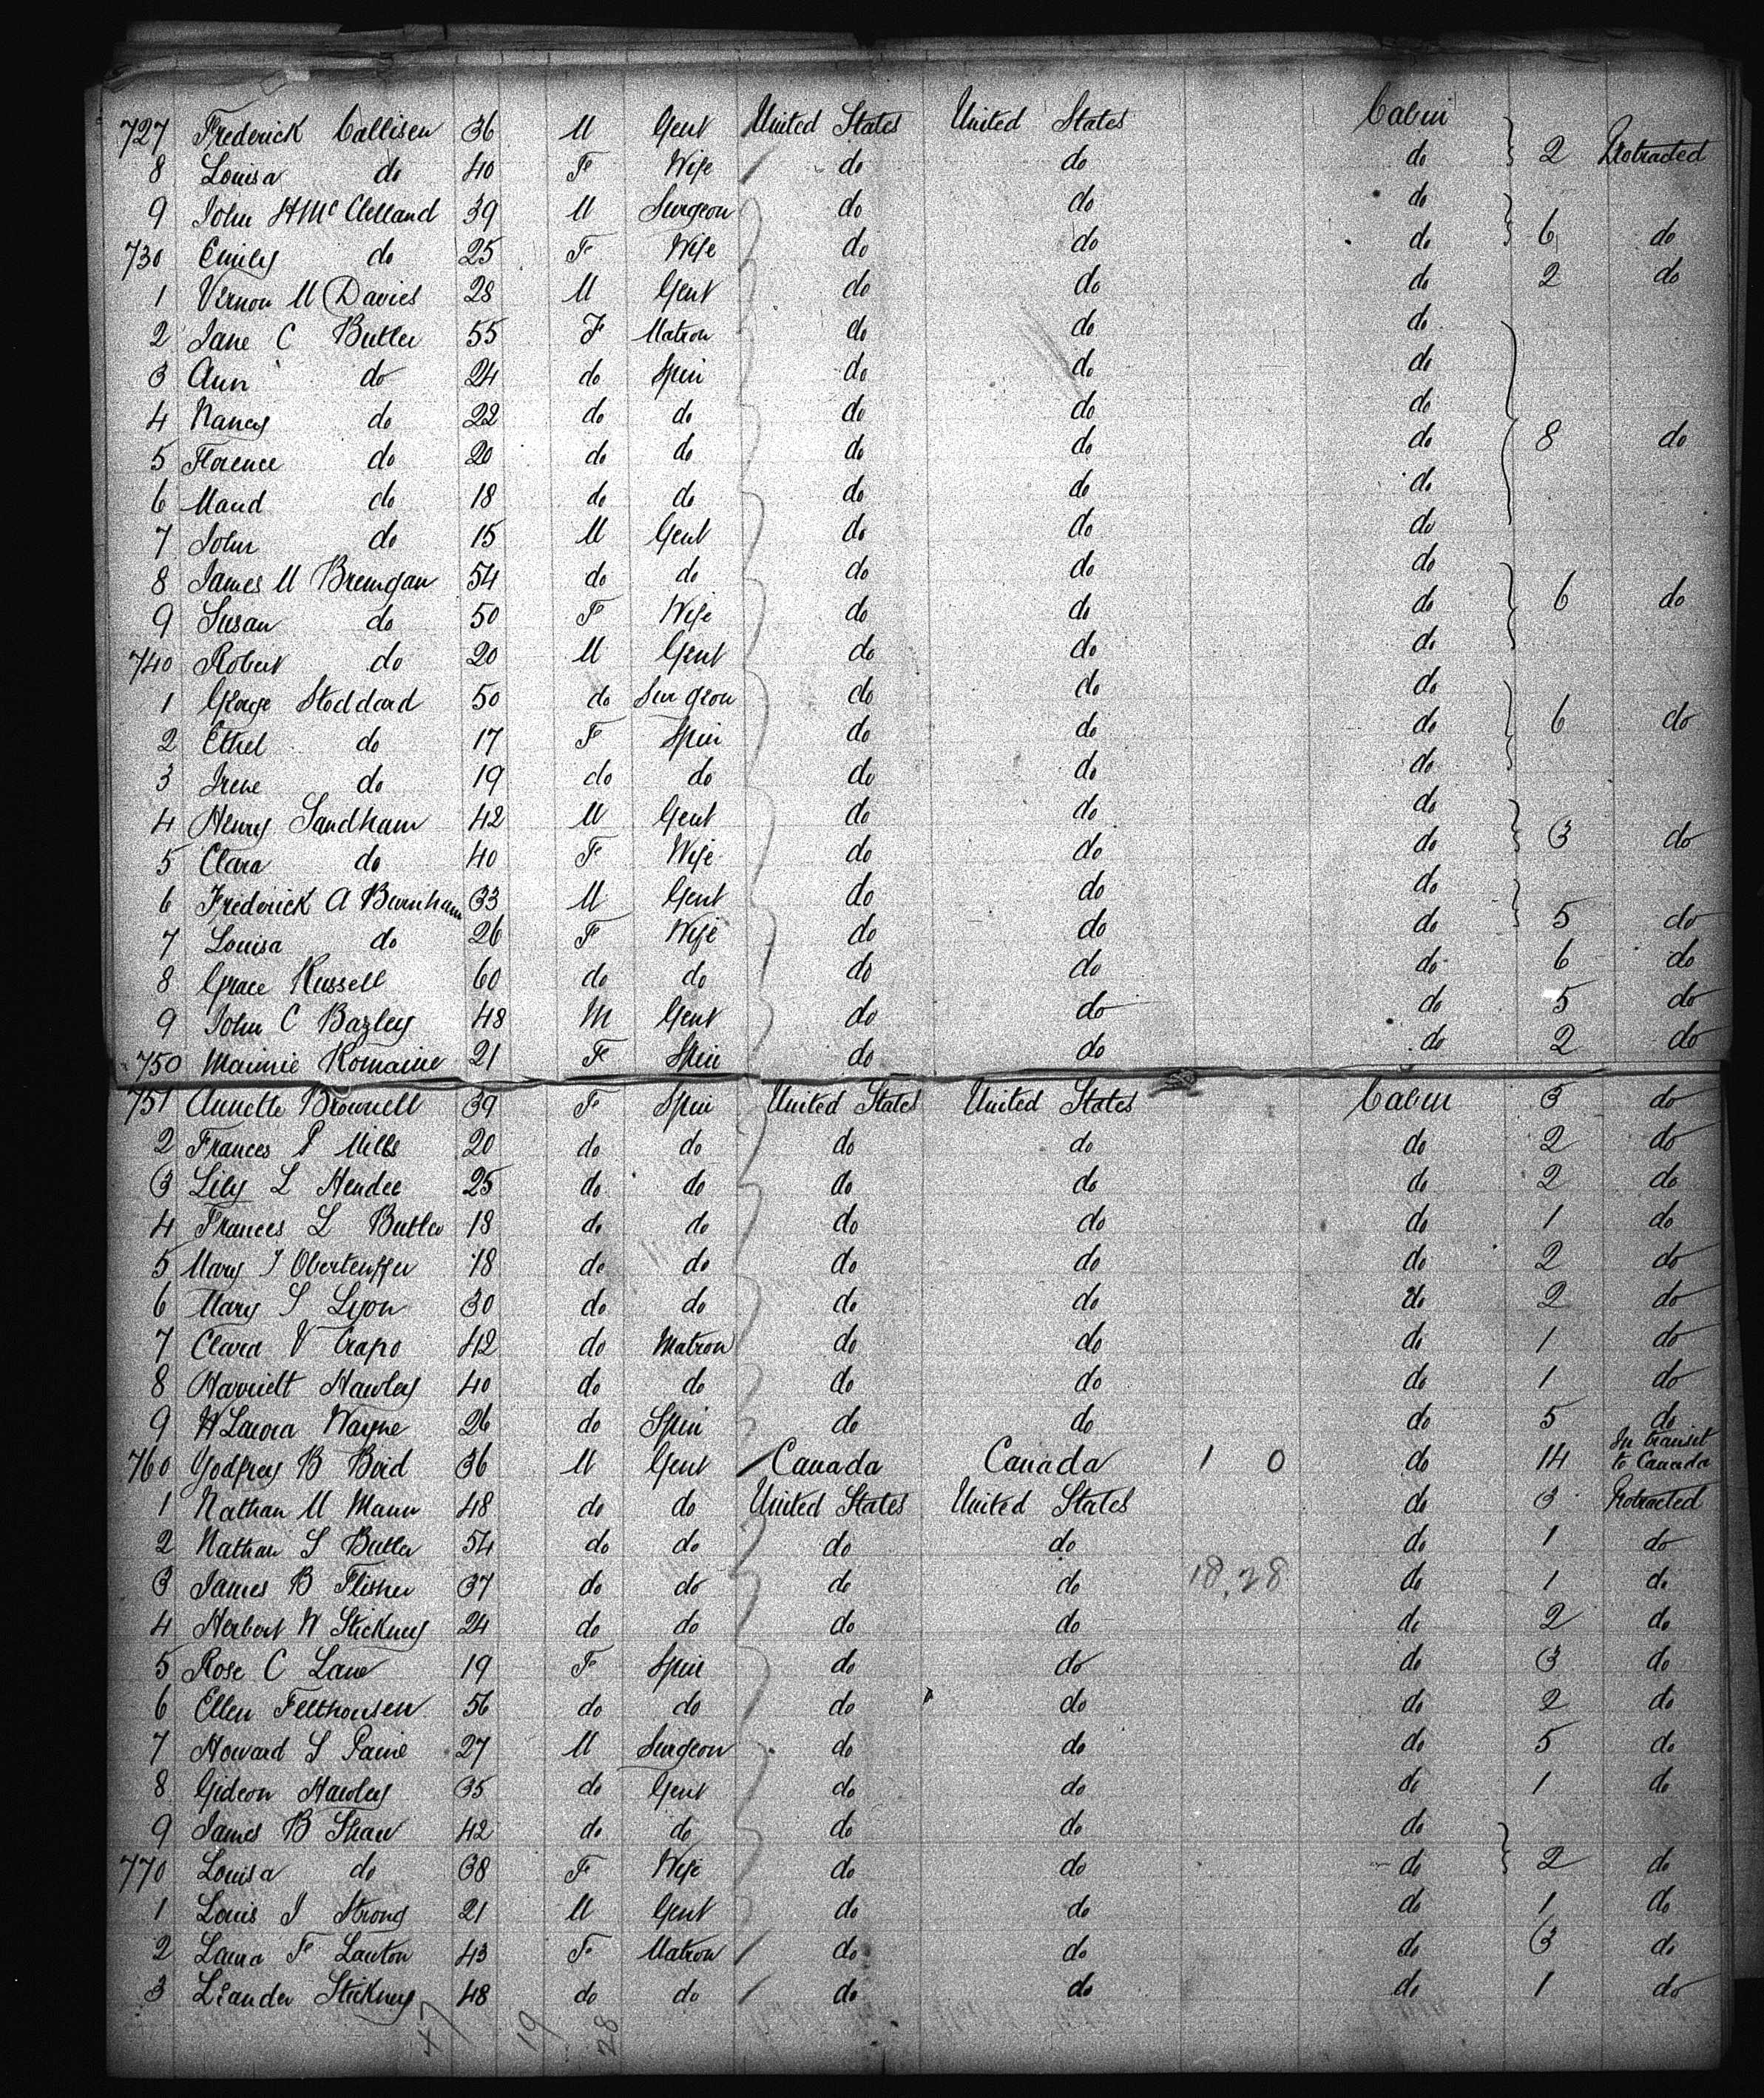 727 Frederick Callisen 36 M Gent United States United States Cabin
8 Louisa do 40 F Wife do do do 2 Protracted
9 John H McClelland 39 M Surgeon do do do
730 Emily do 25 F Wife do do do 6 do
1 Vernon M Davies 28 M Gent do do do 2 do
2 Jane C Butler 55 F Matron do do do
3 Ann do 24 do Spin do do do
4 Nancy do 22 do do do do do
5 Florence do 20 do do do do do 8 do
6 Maud do 18 do do do do do
7 John do 15 M Gent do do do
8 James M 54 do do do do do
9 Susan do 50 F Wife do do do 6 do
740 Robert do 20 M Gent do do do
1 George Stoddard 50 do Surgeon do do do
2 Ethel do 17 F Spin do do do 6 do
3 Irene do 19 do do do do do
4 Henry Sandham 42 M Gent do do do
5 Clara do 40 F Wife do do do 3 do
6 Frederick A Burnham 33 M Gent do do do
7 Louisa do 26 F Wife do do do 5 do
8 Grace Russell 60 do do do do do 6 do
9 John C Bazley 48 M Gent do do do 5 do
750 Maimie Romaine 21 F Spin do do do 2 do
751 Annette Brownell 39 F Spin United States United States Cabin 3 do
2 Frances P Mills 20 do do do do do 2 do
3 Lily L Hendee 25 do do do do do 2 do
4 Frances L Butler 18 do do do do do 1 do
5 Mary J Oberteuffer 18 do do do do do 2 do
6 Mary S Lyon 30 do do do do do 2 do
7 Clara V Crapo 42 do Matron do do do 1 do
8 Harriett Hawley 40 do do do do do 1 do
9 Wayne 26 do Spin do do do 5 do
760 Godfrey B Bird 36 M Gent Canada Canada 1 0 do 14 In transit to Canada
1 Nathan M Mann 48 do do United States United States do 3 Protracted
2 Nathan S Butler 54 do do do do do 1 do
3 James B 37 do do do do 18.28 do 1 do
4 Herbert W Stickney 24 do do do do do 2 do
5 Rose C Lane 19 F Spin do do do 3 do
6 Ellen Felthousen 56 do do do do do 2 do
7 Howard S Paine 27 M Surgeon do do do 5 do
8 Gideon Hawley 35 do Gent do do do 1 do
9 James B Shaw 42 do do do do do
770 Louisa do 38 F Wife do do do 2 do
1 Louis J Strong 21 M Gent do do do 1 do
2 Laura F Lawton 43 F Matron do do do 3 do
3 Leander Stickney 48 do do do do do 1 do
47 19 28